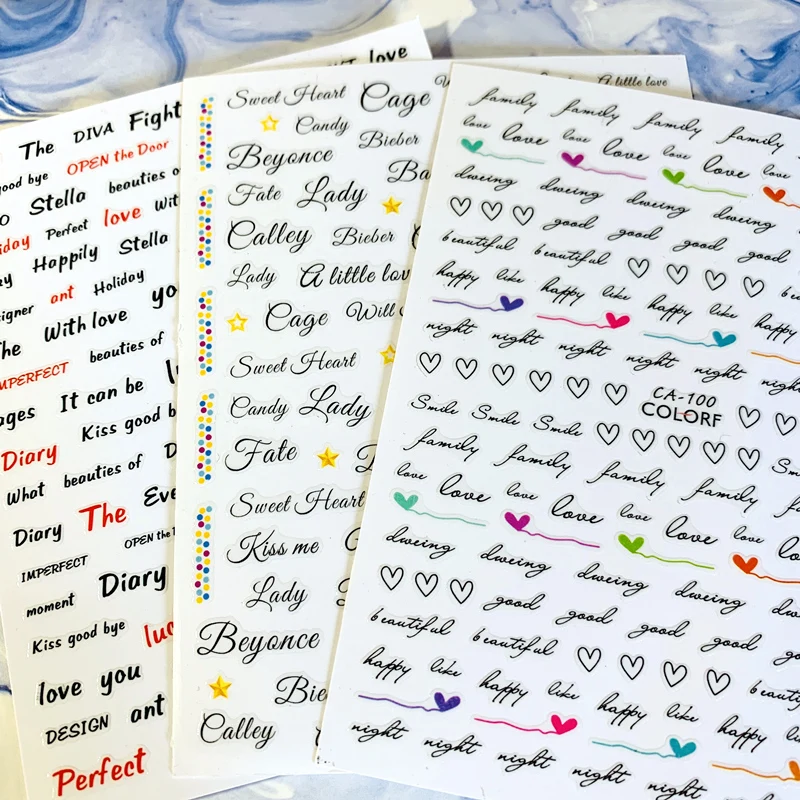 love
The DIVA Fight
good bye OPEN the Door
Stella beauties
Perfect love
Happily Stella
ant Holiday
The With love
IMPERFECT beauties of
It can be
Diary Kiss good
What beauties of
Diary The
IMPERFECT OPEN the
moment Diary
Kiss good bye
love you
DESIGN ant
Perfect
A little love
Sweet Heart Cage
Candy Bieber
Beyonce
Fate Lady
Calley Bieber
Lady A little
Cage Will
Sweet Heart
Candy Lady
Fate
Sweet Heart
Kiss me
Lady
Beyonce
Calley
family family family family
love love love love love love love
dweing dweing dweing dweing
good good good good
beautiful beautiful
happy like happy like happy like happy
night night night night night
CA-100
COLORF
Smile Smile Smile
family family family family
love love love love love love love
dweing dweing dweing dweing
good good good good
beautiful beautiful
happy like happy like happy like happy
night night night night night